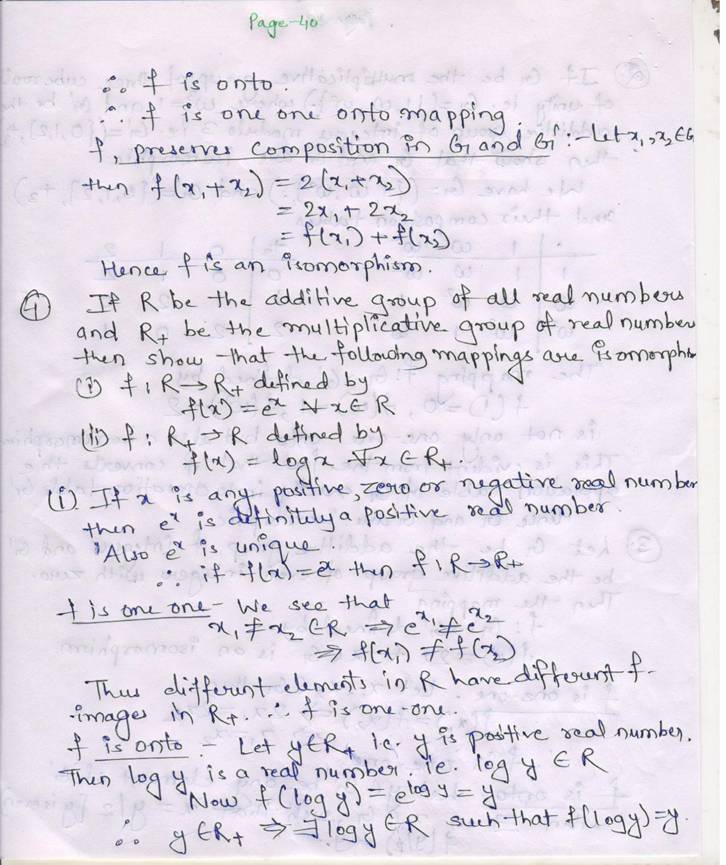 Page-40
∴ f is onto.
∴ f is one one onto mapping.
f, preserves composition in G and G' :- Let x₁, x₂ ∈ G
then f(x₁+x₂) = 2(x₁+x₂)
= 2x₁ + 2x₂
= f(x₁) + f(x₂)
Hence f is an isomorphism.
④ If R be the additive group of all real numbers
and R₊ be the multiplicative group of real number
then show that the following mappings are isomorphi
(i) f : R → R₊ defined by
f(x) = eˣ ∀ x ∈ R
(ii) f : R₊ → R defined by
f(x) = log x ∀ x ∈ R₊.
(i) If x is any positive, zero or negative real number
then eˣ is definitely a positive real number.
Also eˣ is unique.
∴ if f(x) = eˣ then f : R → R₊
f is one one - We see that
x₁ ≠ x₂ ∈ R ⇒ eˣ₁ ≠ eˣ₂
⇒ f(x₁) ≠ f(x₂)
Thus different elements in R have different f-
images in R₊. ∴ f is one-one.
f is onto - Let y ∈ R₊ i.e. y is positive real number.
Then log y is a real number. i.e. log y ∈ R
Now f(log y) = e^log y = y
∴ y ∈ R₊ ⇒ ∃ log y ∈ R such that f(log y) = y.